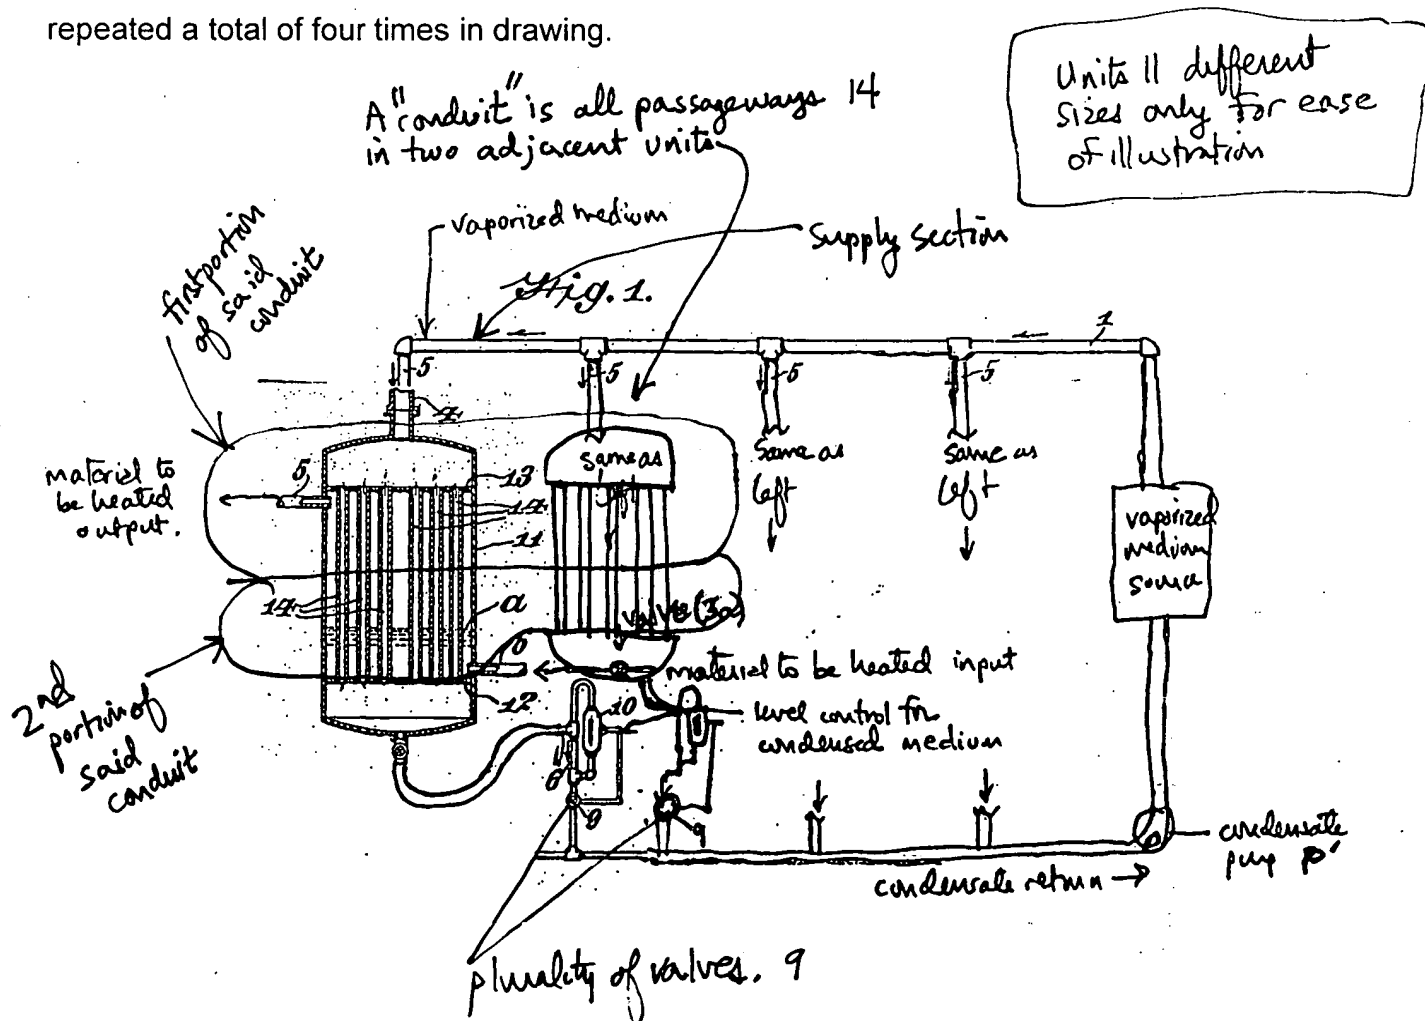 repeated a total of four times in drawing.
Units 11 different
sizes only for ease
of illustration
A "conduit" is all passageways 14
in two adjacent units
vaporized medium
supply section
first portion
of said
conduit
Fig. 1.
1
5
5
5
5
4
material to
be heated
output.
5
13
14
11
14
a
12
same as
left
same as
left
same as
left
vaporized
medium
source
valve (3a)
6
material to be heated input
10
level control for
condensed medium
2nd
portion of
said
conduit
8
9
9
condensate
pump p'
condensate return →
plurality of valves. 9